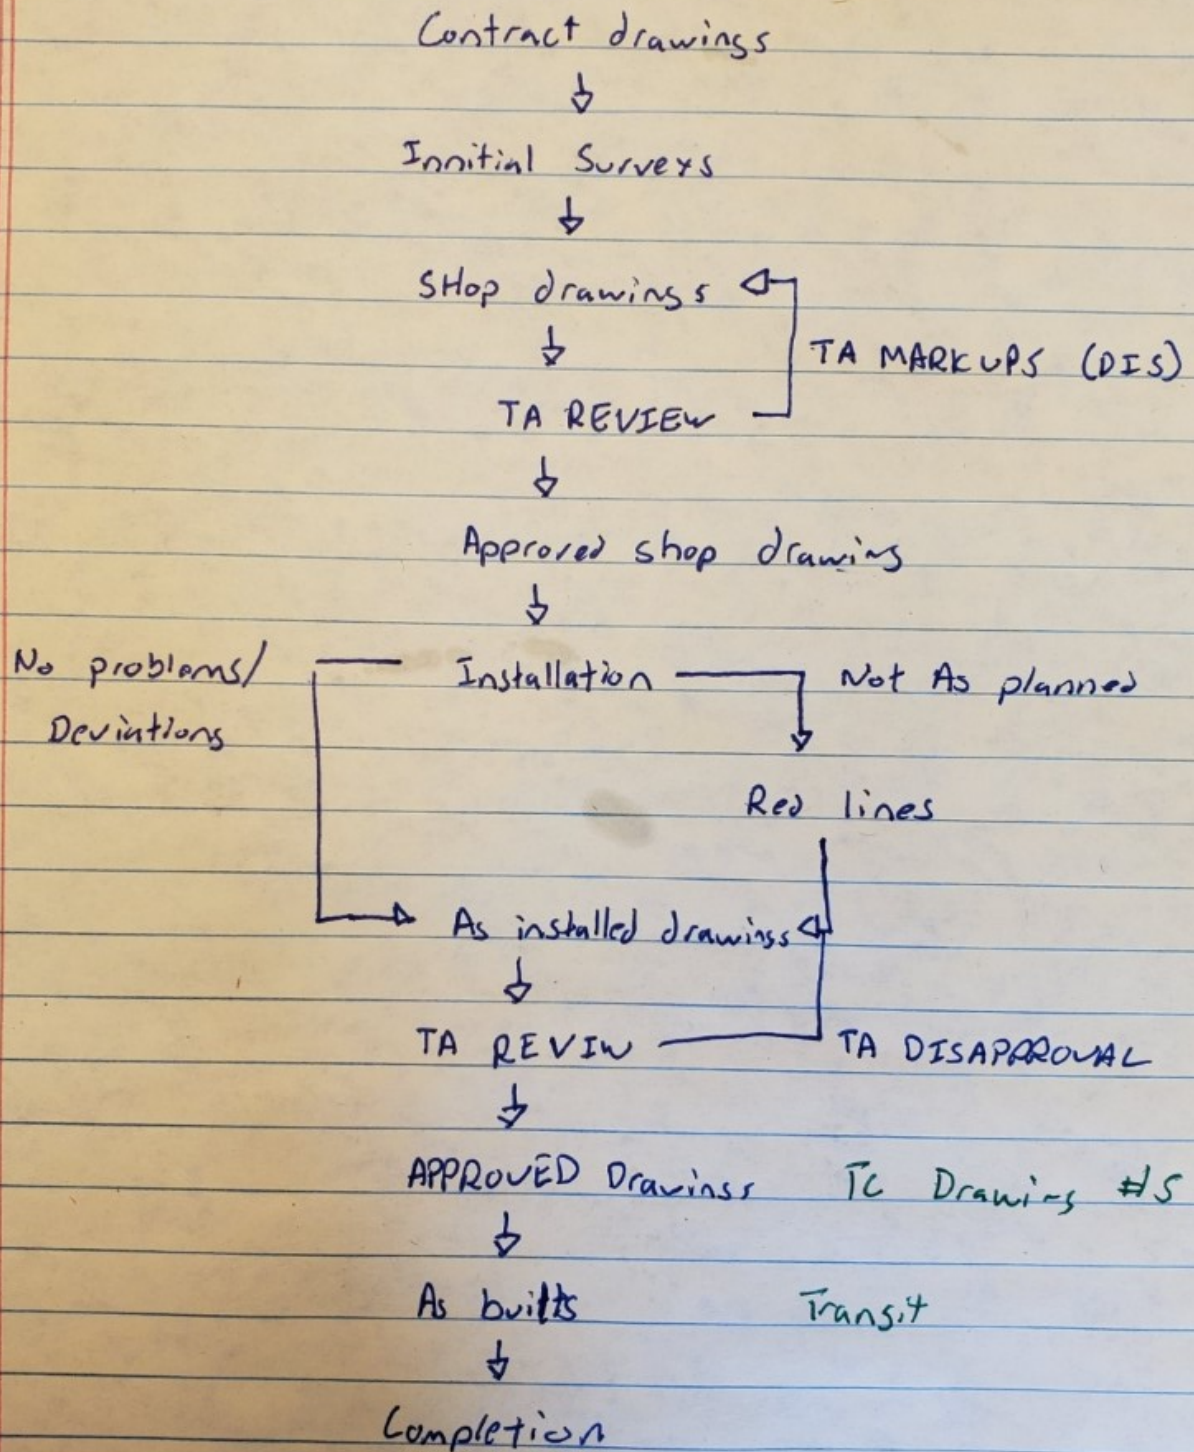 Contract drawings
Innitial Surveys
SHop drawings
TA MARKUPS (DIS)
TA REVIEW
Approved shop drawing
No problems/ Installation Not As planned
Deviations
Red lines
As installed drawings
TA REVIW TA DISAPPROVAL
APPROVED Drawings TC Drawing #S
As builts Transit
Completion